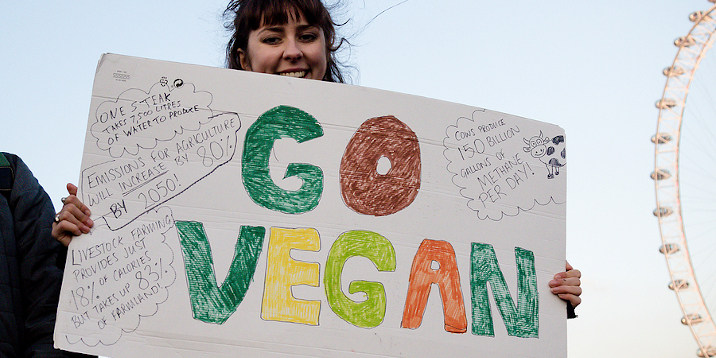 ONE STEAK
TAKES 7,500 LITRES
OF WATER TO PRODUCE
EMISSIONS FOR AGRICULTURE
WILL INCREASE BY 80%
BY 2050!
LIVESTOCK FARMING
PROVIDES JUST
18% OF CALORIES
BUT TAKES UP 83%
OF FARMLAND!
GO
VEGAN
COWS PRODUCE
150 BILLION
GALLONS OF
METHANE
PER DAY!